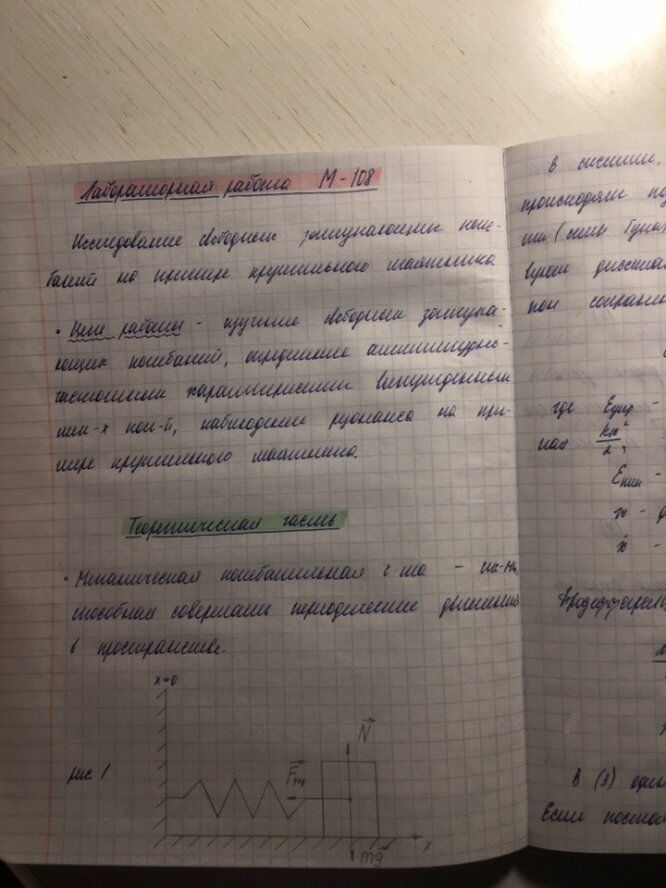 Лабораторная работа М-108
Исследование свободных затухающих коле-
баний на примере крутильного маятника
• Цель работы - изучение свободных затуха-
ющих колебаний, определение амплитудно-
частотных характеристик вынужденных
мех-х кол-й, наблюдение резонанса на при-
мере крутильного маятника.
Теоретическая часть
• Механическая колебательная с-ма -
способная совершать периодические движения
в пространстве.
x=0
N
рис. 1
Fупр
x
mg
в системе,
происходят по
ти (силы
вует
кон сохранен
где Eупр -
ная kx²/2,
Eкин -
x -
ẋ -
Продифферен
в (3)
Если